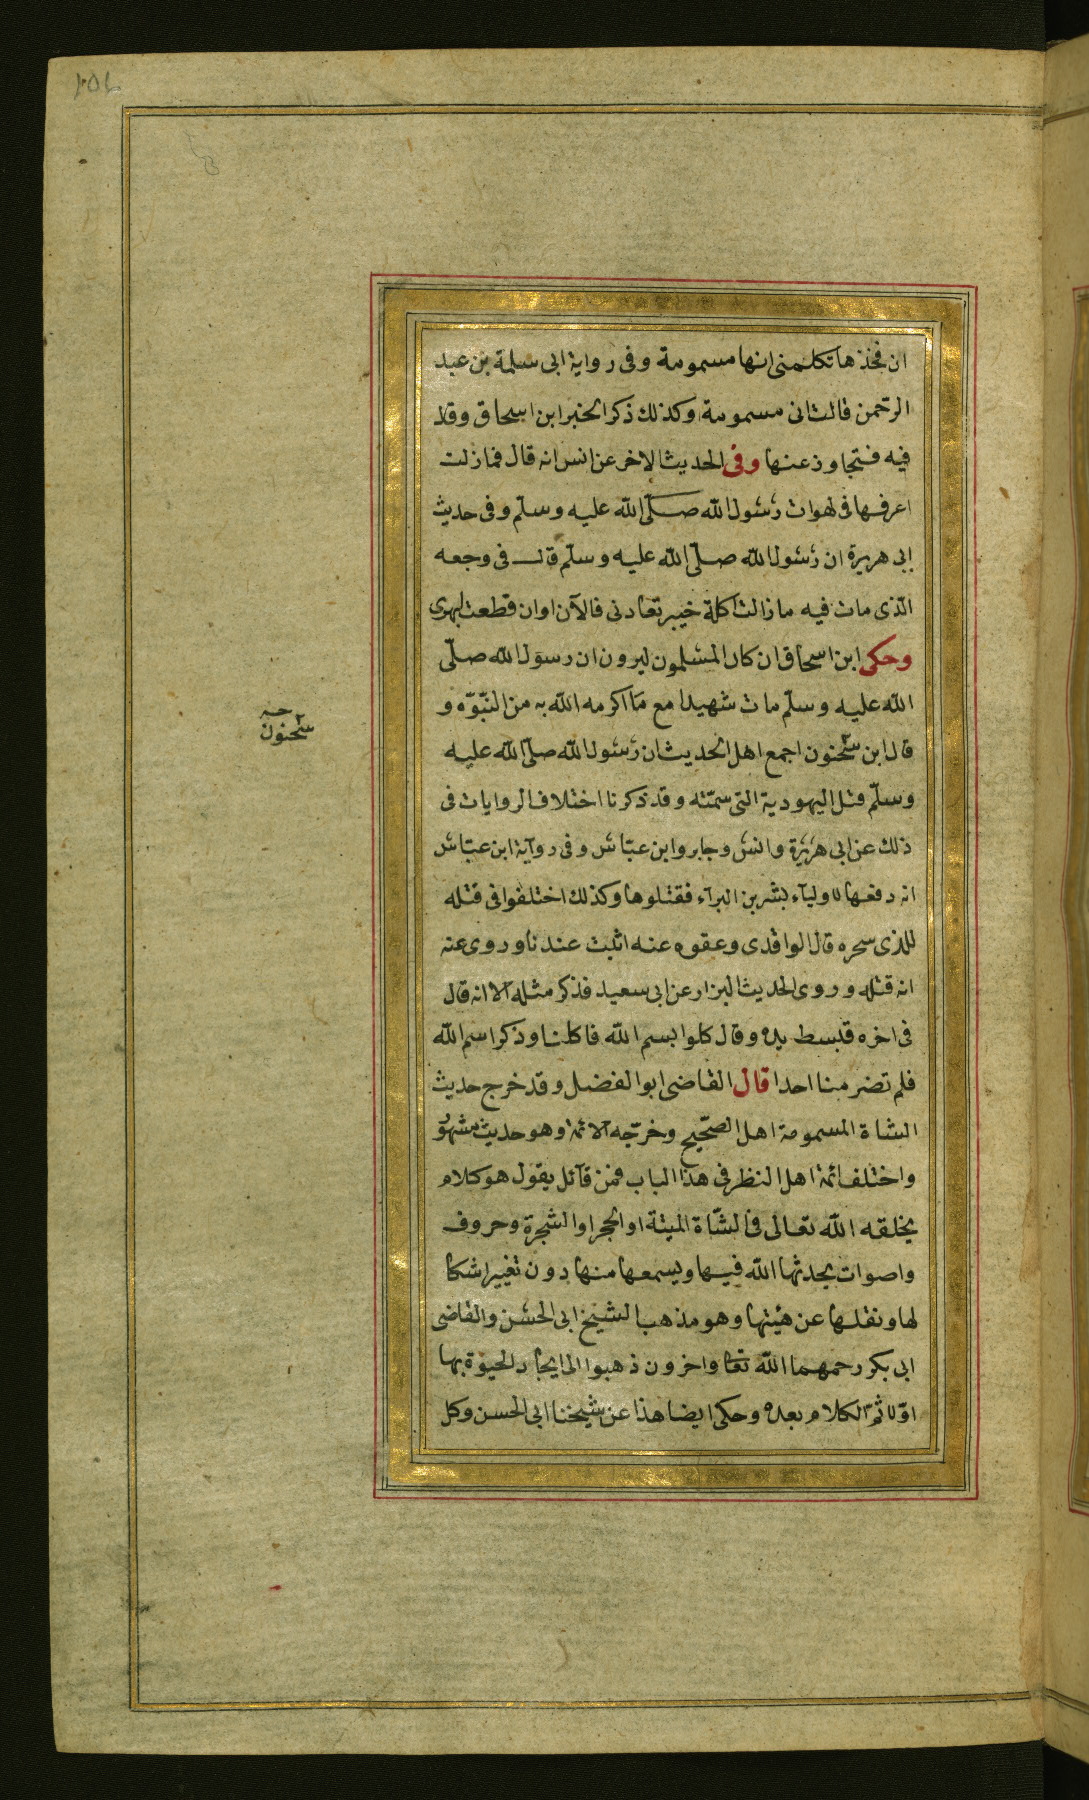 ان فخذها تكلمنى انها مسمومة وفى رواية ابى سلمة بن عبد
الرحمن قالت انى مسمومة وكذلك ذكر الخبر ابن اسحاق وقال
فيه فتجاوز عنها وفى الحديث الاخر عن انس انه قال فما زلت
اعرفها فى لهوات رسول الله صلّى الله عليه وسلّم وفى حديث
ابى هريرة ان رسول الله صلّى الله عليه وسلّم قال فى وجعه
الّذى مات فيه ما زالت اكلة خيبر تعادنى فالآن اوان قطعت ابهرى
وحكى ابن اسحاق ان كان المسلمون ليرون ان رسول الله صلّى
الله عليه وسلّم مات شهيدا مع مَا اكرمه الله به من النّبوّة و
قال ابن سحنون اجمع اهل الحديث ان رسول الله صلّى الله عليه
وسلّم قتل اليهودية التى سمّته وقد ذكرنا اختلاف الروايات فى
ذلك عن ابى هريرة وانس وجابر وابن عبّاس وفى رواية ابن عبّاس
انه دفعها لاولياء بشر بن البرآء فقتلوها وكذلك اختلفوا فى قتله
للذى سحره قال الواقدى وعفوه عنه اثبت عندنا وروى عنه
انه قتله وروى الحديث البزار عن ابى سعيد فذكر مثله الا انه قال
فى اخره فبسط يده وقال كلوا بسم الله فاكلنا وذكر اسم الله
فلم تضر منا احدا قال القاضى ابو الفضل وقد خرج حديث
الشاة المسمومة اهل الصّحيح وخرّجه الائمة وهو حديث مشهور
واختلف ائمة اهل النظر فى هذا الباب فمن قآئل يقول هو كلام
يخلقه الله تعالى فى الشّاة الميتة او الحجر او الشجرة وحروف
واصوات يحدثها الله فيها ويسمعها منها دون تغيير اشكا
لها ونقلها عن هيئتها وهو مذهب الشيخ ابى الحسن والقاضى
ابى بكر رحمهما الله تعا واخرون ذهبوا الى ايجاد الحيوة بها
اوّلا ثمّ الكلام بعده وحكى ايضا هذا عن شيخنا ابى الحسن وكل
سحنون